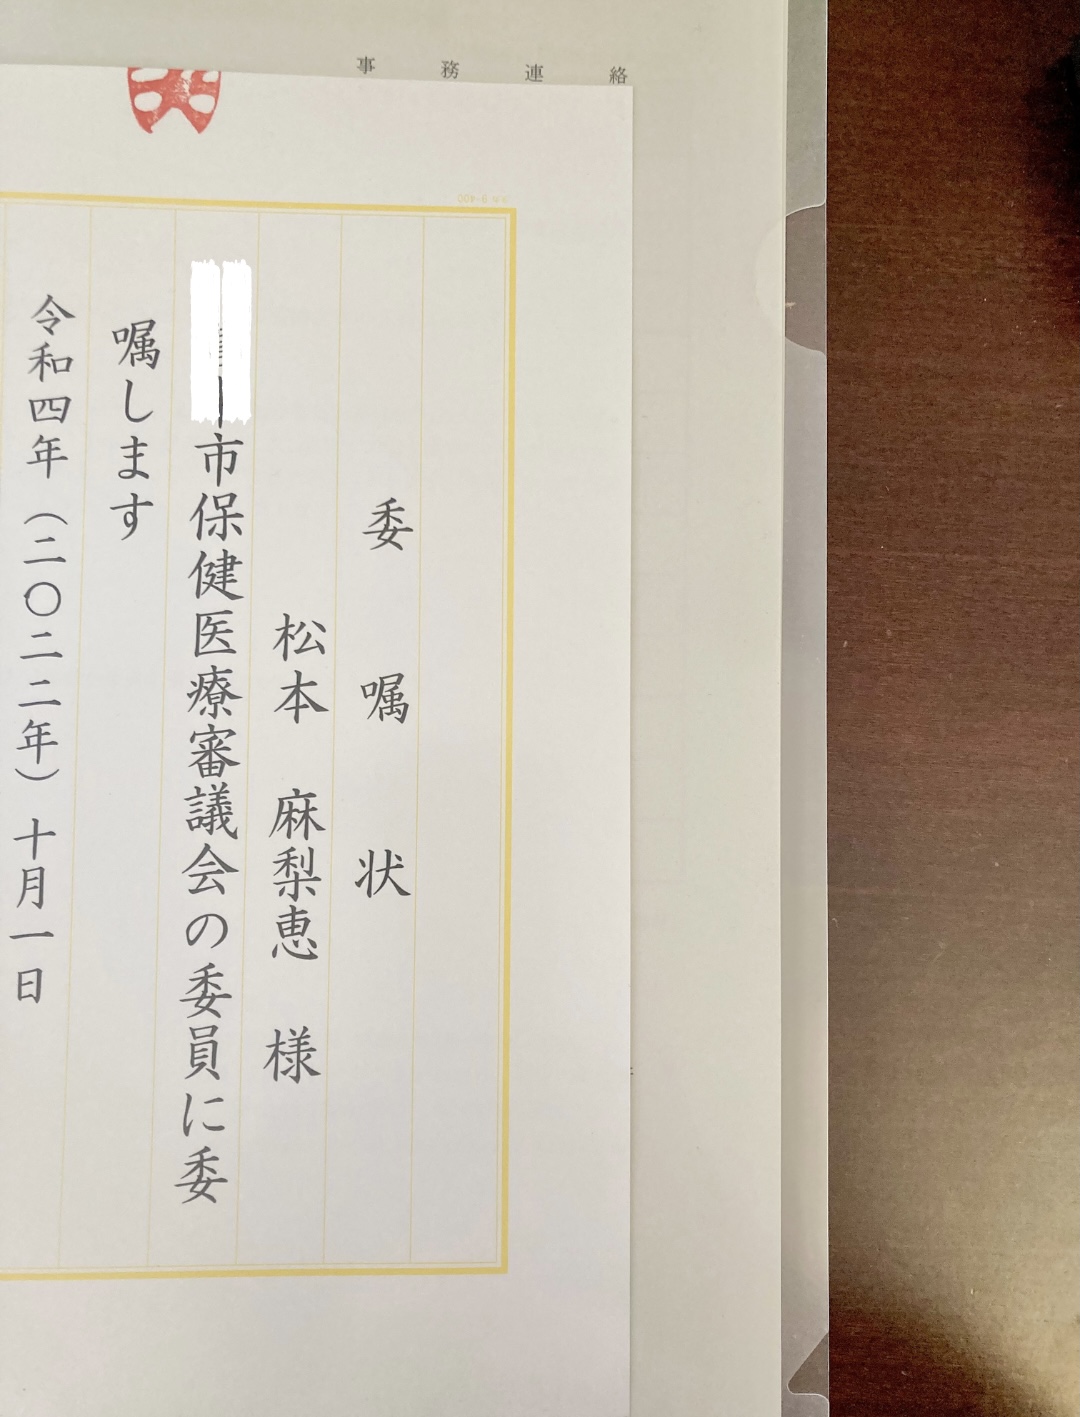 事務連絡
委嘱状
松本 麻梨恵 様
市保健医療審議会の委員に委
嘱します
令和四年(二〇二二年)十月一日